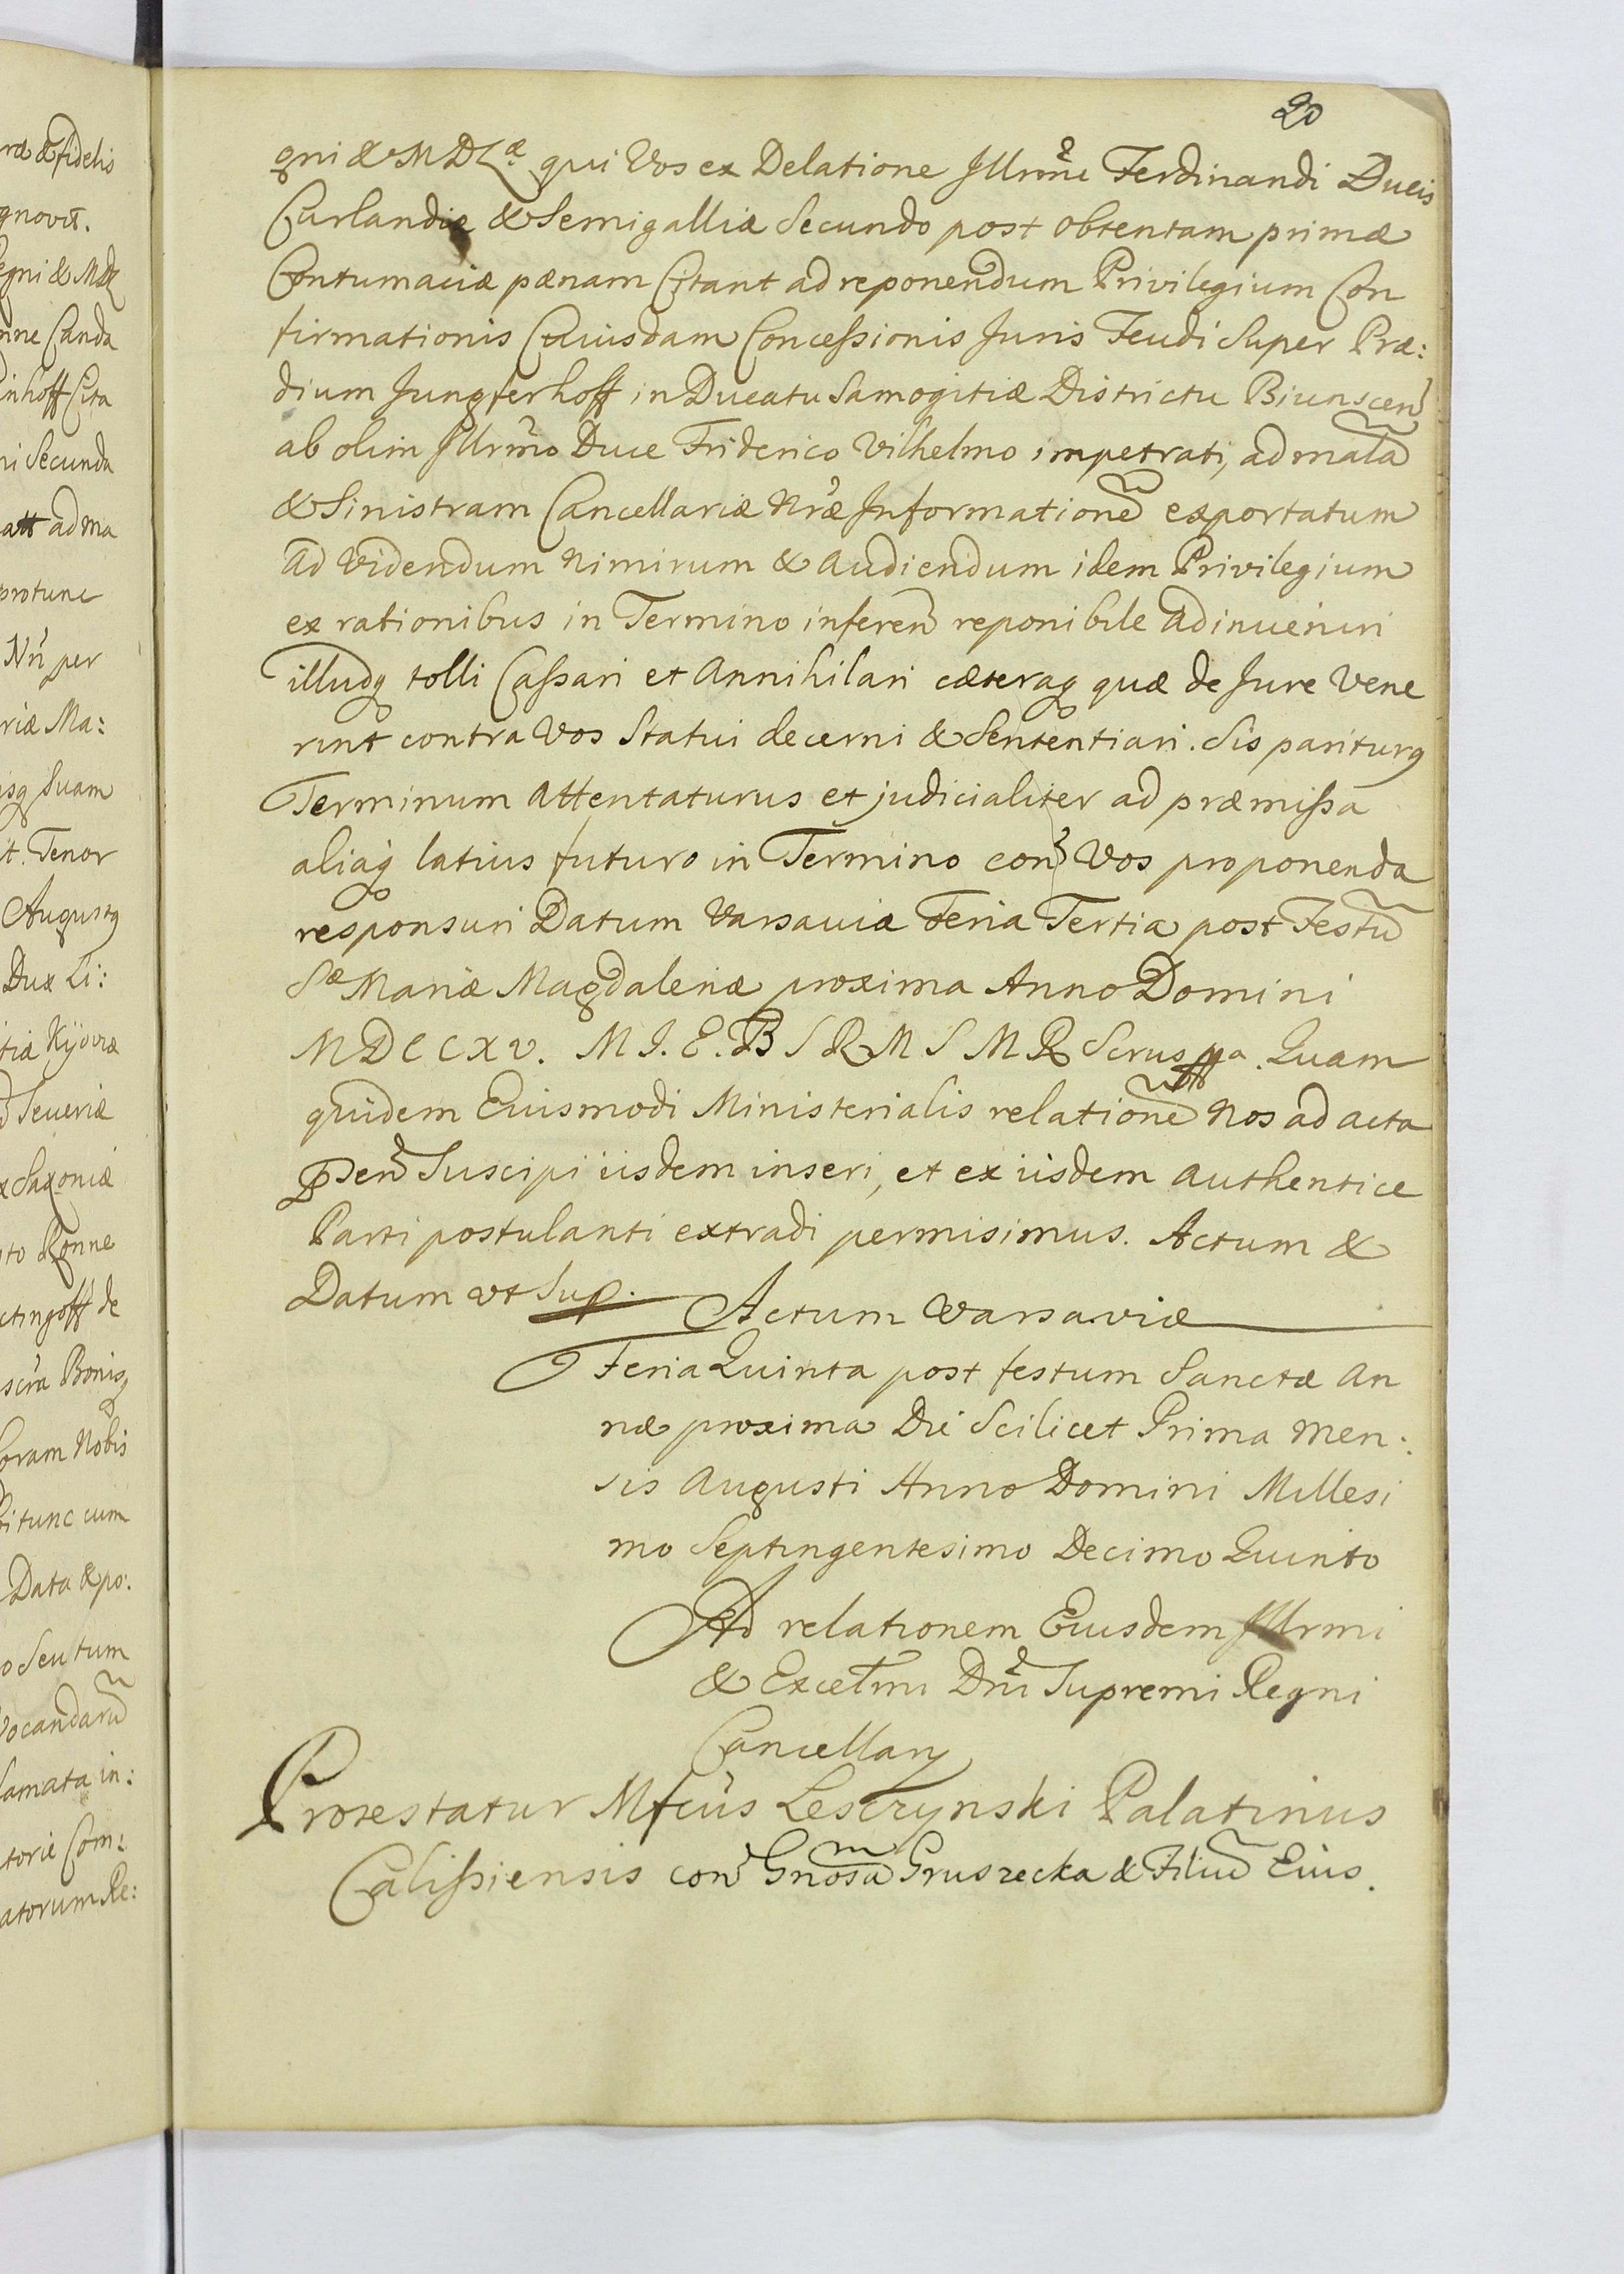 20
gni & MDLæ qui Vos ex Delatione Jllrmi Ferdinandi Ducis
Curlandiæ & Semigalliæ Secundo post obtentam primæ
Contumaciæ pænam Citant ad reponendum Privilegium Con
firmationis Cuiusdam Concessionis Juris Feudi Super Præ:
dium Jungferhoff in Ducatu Samogitiæ Districtu Biunscen
ab olim Jllrmo Duce Friderico Vilhelmo impetrati, ad mala
& Sinistram Cancellariæ Nræ Informatione exportatum
ad Videndum Nimirum & Audiendum idem Privilegium
ex rationibus in Termino inferen reponibile adinueniri
illudq tolli Cassari et Annihilari cæteraq quæ de Jure Vene
rint contra Vos Statui decerni & Sententiari. Sis pariturq
Terminum Attentaturus et judicialiter ad præmissa
aliaq latius futuro in Termino con Vos proponenda
responsuri Datum Varsaviæ Feria Tertia post Festu
Sæ Mariæ Magdalenæ proxima Anno Domini
MDCCXV. M I. E. B S R M S M R Scrus ppa. Quam
quidem Eiusmodi Ministerialis relatione Nos ad acta
psen Suscipi iisdem inseri, et ex iisdem authentice
Parti postulanti extradi permisimus. Actum &
Datum ut Sup.
Actum Varsaviæ
Feria Quinta post festum Sanctæ An
næ proxima Die Scilicet Prima Men:
sis Augusti Anno Domini Millesi
mo Septingentesimo Decimo Quinto
Ad relationem Eiusdem Jllrmi
& Excelmi Dni Supremi Regni
Cancellarÿ
Protestatur Mfcus Lesczynski Palatinus
Calissiensis con Gnosa Gruszecka & Filiu Eius.